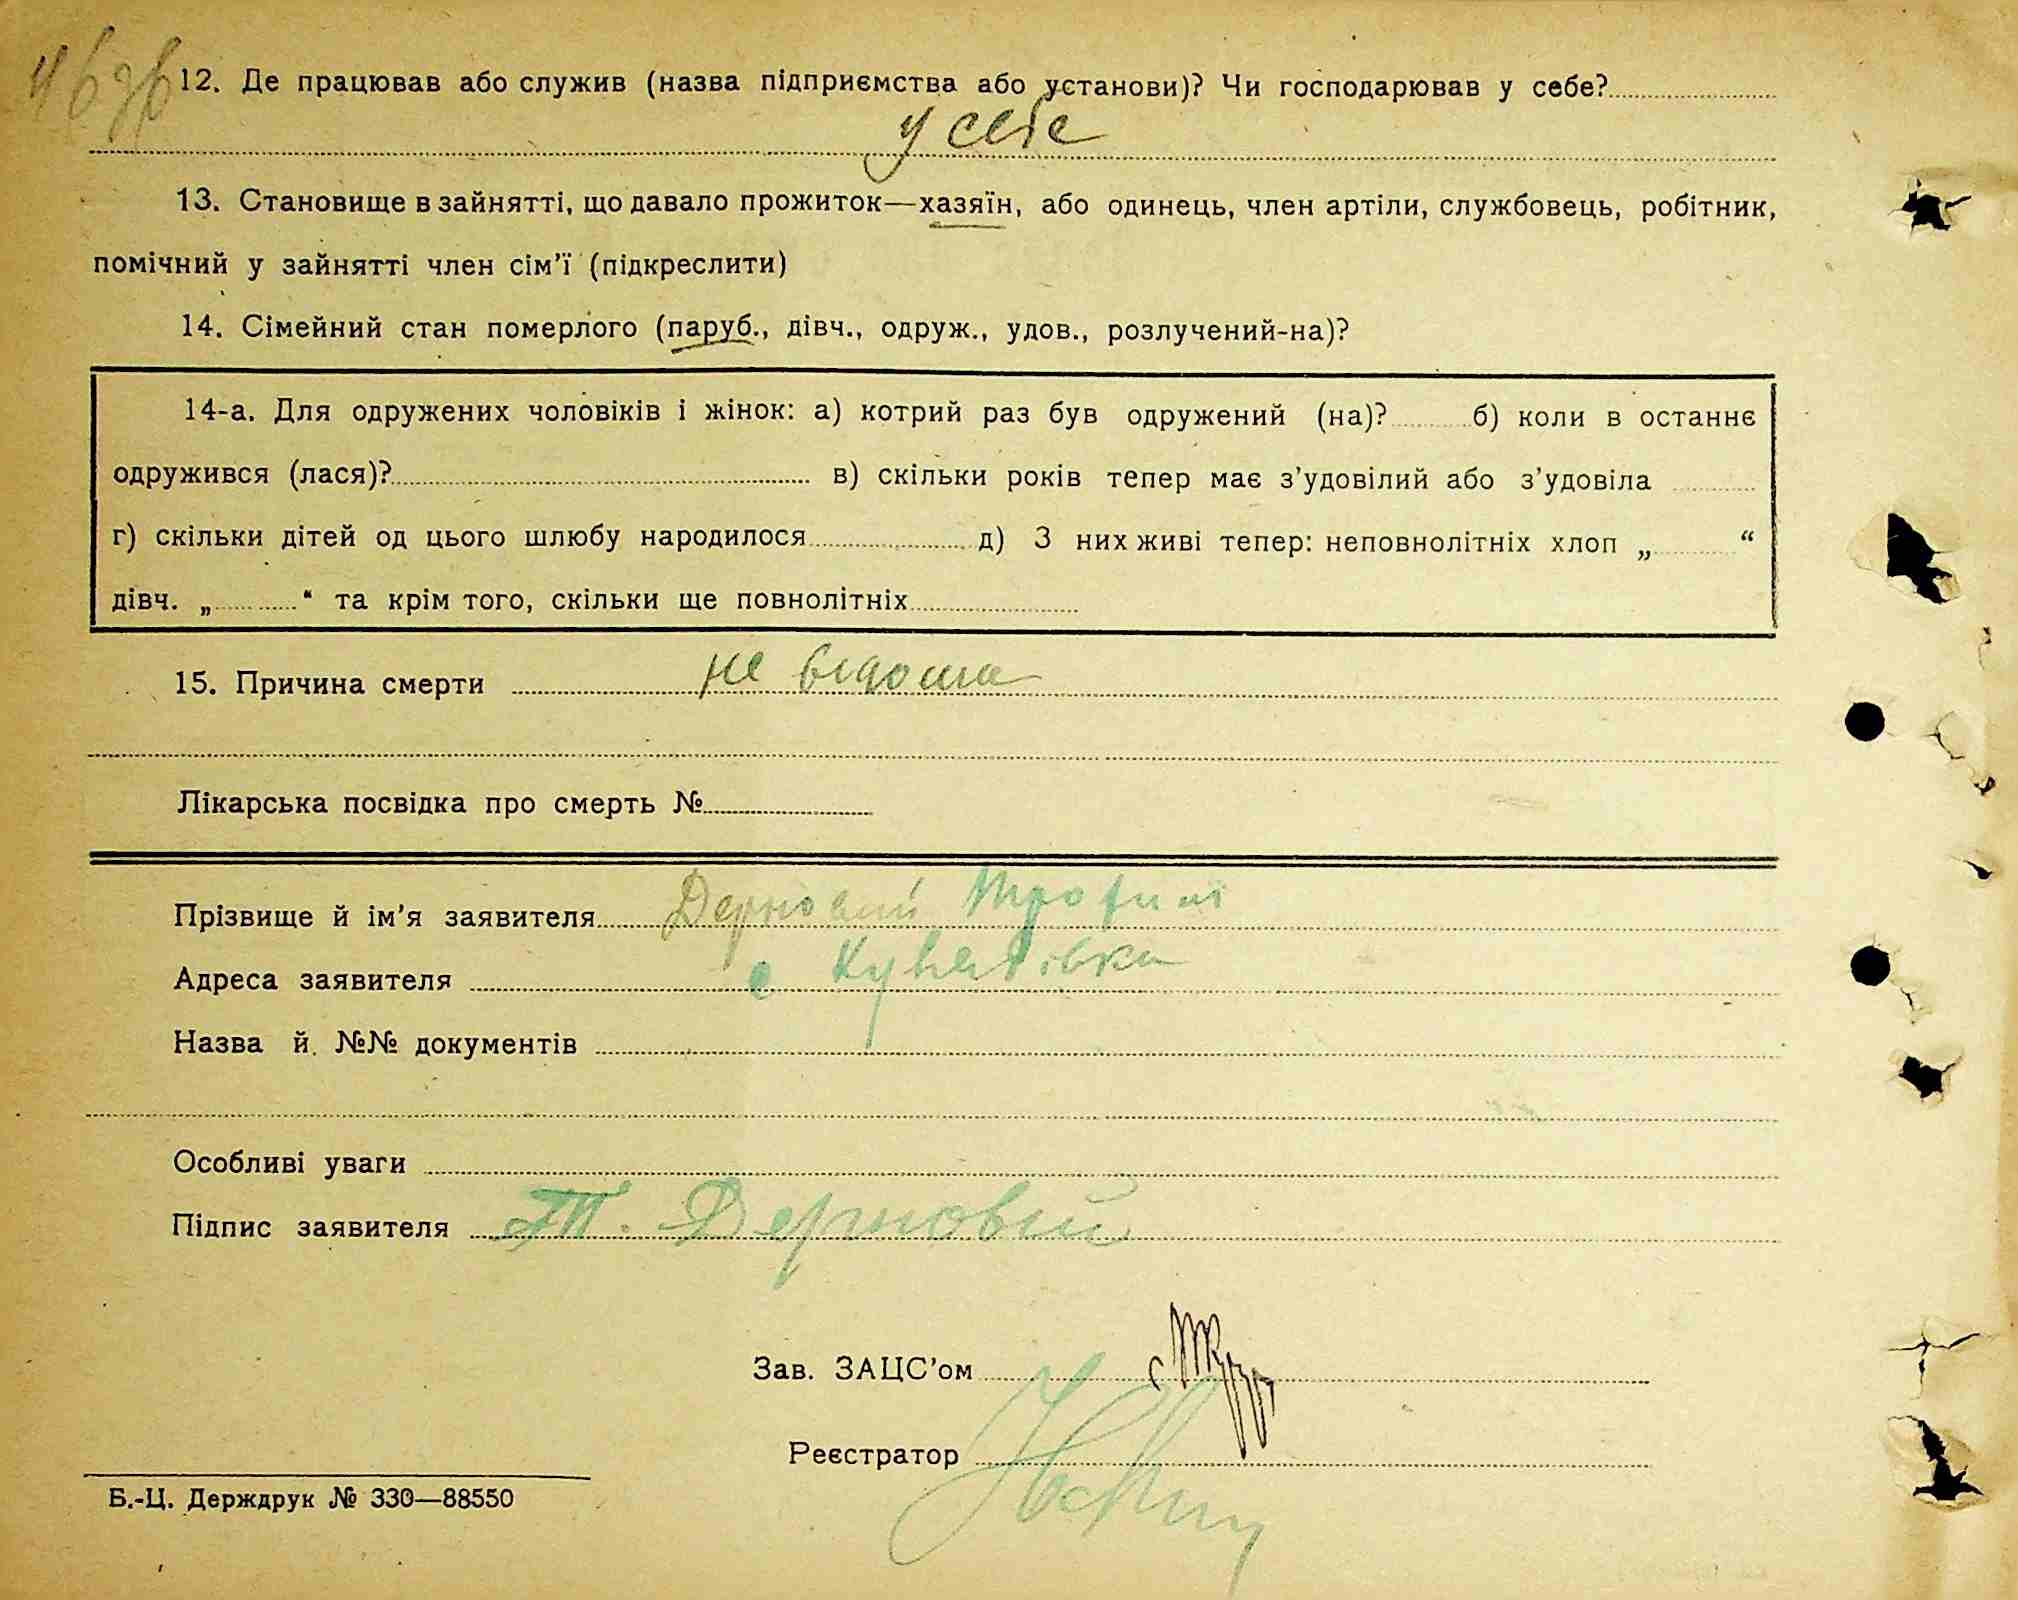 12. Де працював або служив (назва підприємства або установи)? Чи господарював у себе?
у себе
13. Становище в зайнятті, що давало прожиток—хазяїн, або одинець, член артіли, службовець, робітник,
помічний у зайнятті член сім'ї (підкреслити)
14. Сімейний стан померлого (паруб., дівч., одруж., удов., розлучений-на)?
14-а. Для одружених чоловіків і жінок: а) котрий раз був одружений (на)? б) коли в останнє
одружився (лася)? в) скільки років тепер має з'удовілий або з'удовіла
г) скільки дітей од цього шлюбу народилося д) З них живі тепер: неповнолітніх хлоп „ “
дівч. „ “ та крім того, скільки ще повнолітніх
15. Причина смерти не відома
Лікарська посвідка про смерть №
Прізвище й ім'я заявителя Дерновий Трофим
Адреса заявителя с
Назва й №№ документів
Особливі уваги
Підпис заявителя Т. Дерновій
Зав. ЗАЦС'ом
Реєстратор
Б.-Ц. Держдрук № 330—88550